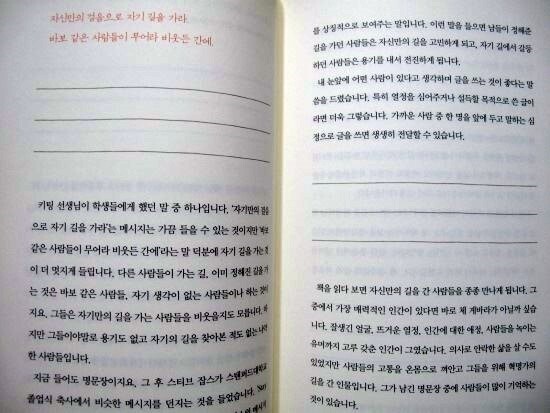 자신만의 걸음으로 자기 길을 가라.
바보 같은 사람들이 무어라 비웃든 간에.
키팅 선생님이 학생들에게 했던 말 중 하나입니다. '자기만의 걸음
으로 자기 길을 가라'는 메시지는 가끔 들을 수 있는 것이지만 '바보
같은 사람들이 무어라 비웃든 간에'라는 말 덕분에 자기 길을 가는 것
이 더 멋지게 들립니다. 다른 사람들이 가는 길, 이미 정해진 길을 가
는 것은 바보 같은 사람들, 자기 생각이 없는 사람들이나 하는 것이
지요. 그들은 자기만의 길을 가는 사람들을 비웃을지도 모릅니다. 하
지만 그들이야말로 용기도 없고 자기의 길을 찾아본 적도 없는 나약
한 사람들입니다.
지금 들어도 명문장이지요. 그 후 스티브 잡스가 스탠퍼드대학교
졸업식 축사에서 비슷한 메시지를 던지는 것을 들었습니다. 'Stay
를 상징적으로 보여주는 말입니다. 이런 말을 들으면 남들이 정해준
길을 가던 사람들은 자신만의 길을 고민하게 되고, 자기 길에서 갈등
하던 사람들은 용기를 내서 전진하게 됩니다.
내 눈앞에 어떤 사람이 있다고 생각하며 글을 쓰는 것이 좋다는 말
씀을 드렸습니다. 특히 열정을 심어주거나 설득할 목적으로 쓴 글이
라면 더욱 그렇습니다. 가까운 사람 중 한 명을 앞에 두고 말하는 심
정으로 글을 쓰면 생생히 전달할 수 있습니다.
책을 읽다 보면 자신만의 길을 간 사람들을 종종 만나게 됩니다. 그
중에서 가장 매력적인 인간이 있다면 바로 체 게바라가 아닐까 싶습
니다. 잘생긴 얼굴, 뜨거운 열정, 인간에 대한 애정, 사람들을 녹이는
유머까지 고루 갖춘 인간이 그였습니다. 의사로 안락한 삶을 살 수도
있었지만 사람들의 고통을 온몸으로 껴안고 그들을 위해 혁명가의
길을 간 인물입니다. 그가 남긴 명문장 중에 사람들이 많이 기억하는
것이 있습니다.